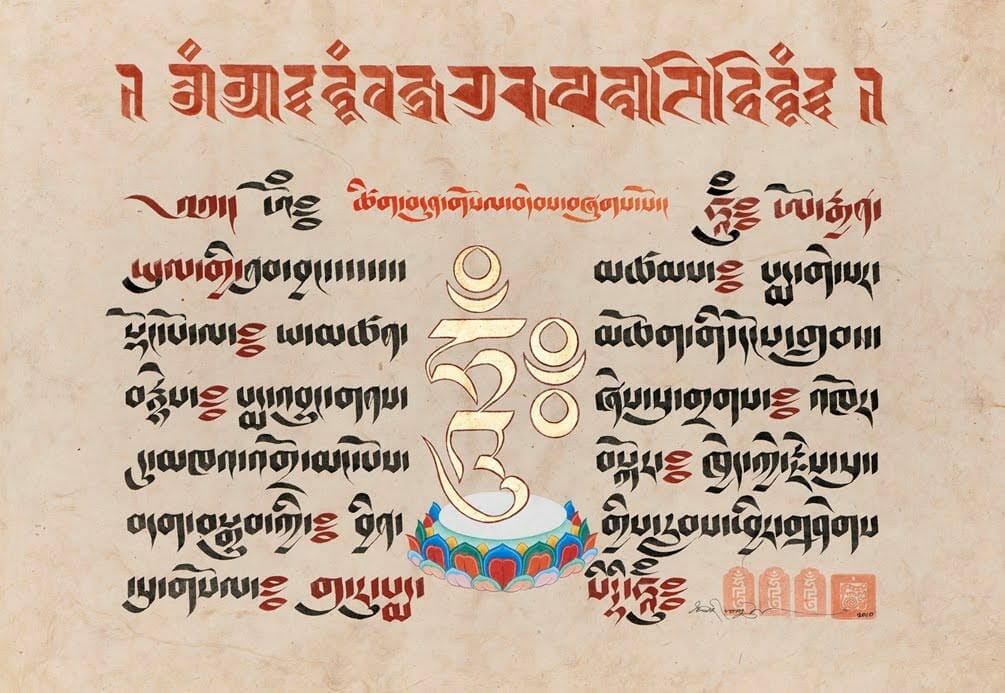 ། ཨོཾ་ཨཱཿཧཱུྃ་བཛྲ་གུ་རུ་པདྨ་སིདྡྷི་ཧཱུྃ༔ །
ཚིག་བདུན་གསོལ་འདེབས་བཞུགས་སོ།།
༄༅།། ཨོཾ༔ ཧཱུྃ༔ ཨོ་རྒྱན་
ཡུལ་གྱི་ནུབ་བྱང་།།།།།།།། མཚམས༔ པདྨ་གེ་སར་
སྡོང་པོ་ལ༔ ཡ་མཚན་ མཆོག་གི་དངོས་གྲུབ།།།
བརྙེས༔ པདྨ་འབྱུང་གནས་ ཞེས་སུ་གྲགས༔ འཁོར་
དུ་མཁའ་འགྲོ་མང་པོས་ བསྐོར༔ ཁྱེད་ཀྱི་རྗེས་སུ།།
བདག་བསྒྲུབ་ཀྱི༔ བྱིན་ གྱིས་རླབས་ཕྱིར་གཤེགས་
སུ་གསོལ༔ གུ་རུ་པདྨ་ སིདྡྷི་ཧཱུྃ༔
ཨོཾ་ཨཱཿཧཱུྃ
2010